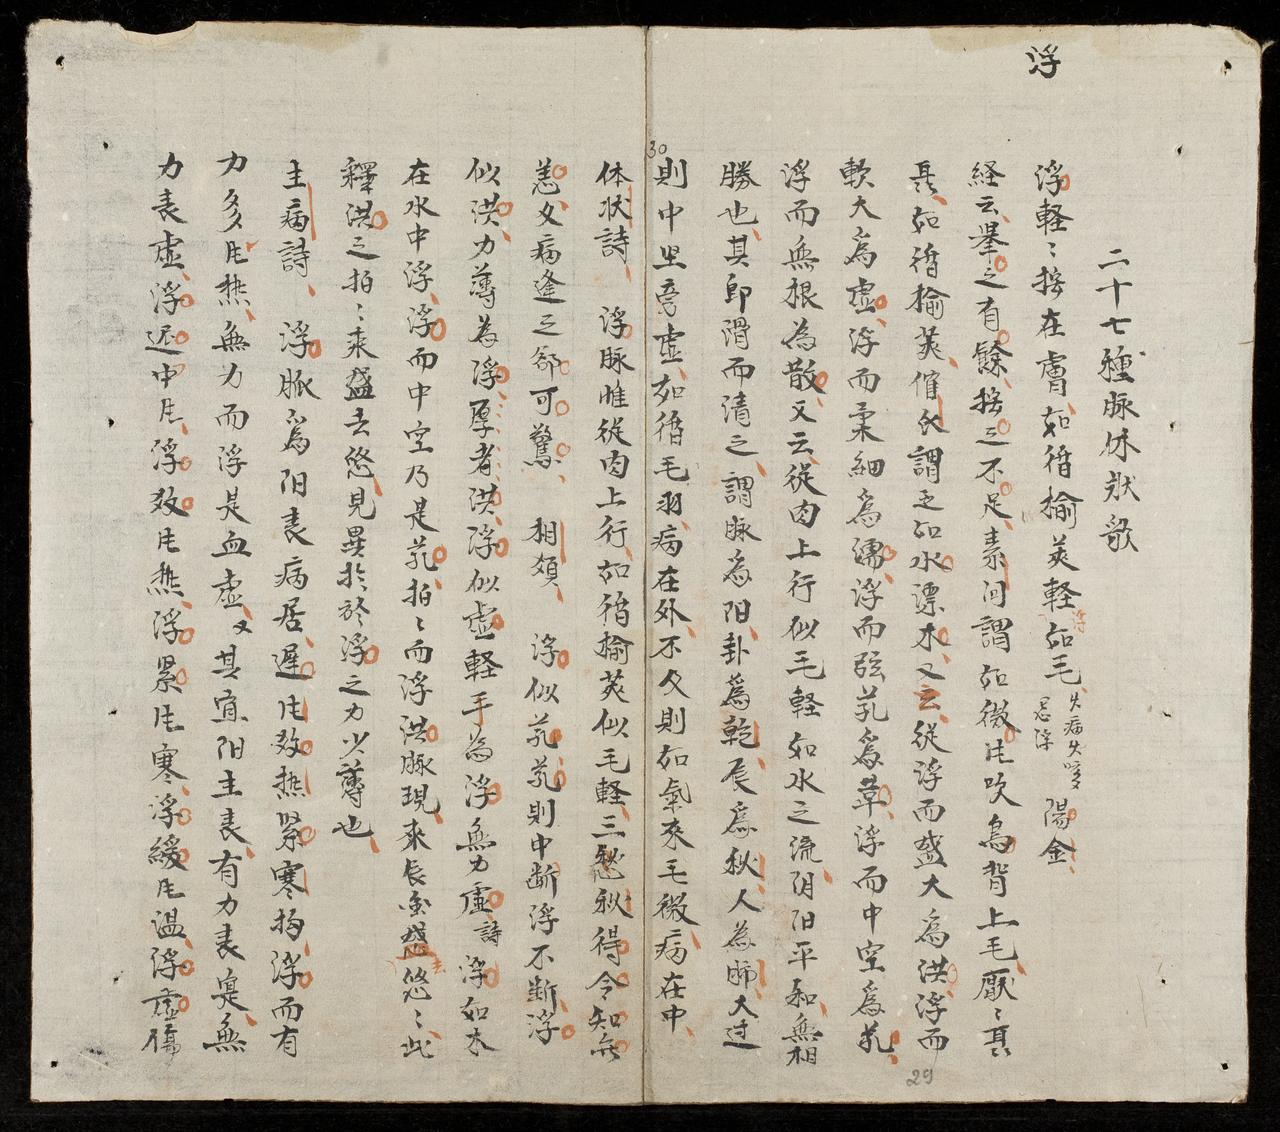 浮
二十七種脉体狀歌
浮軽〻按在膚如循揄莢軽如毛 陽金
経云舉之有餘按之不足素问謂如微风吹鳥背上毛厭〻其
長如循揄莢 謂之如水漂木又云従浮而盛大為洪浮而
軟大為虚浮而柔細為濡浮而弦芤為革浮而中空為芤
浮而無根為散又云従肉上行似毛軽如水之流阴阳平和無相
勝也其 滑而清之謂脉為阳卦為乾辰為秋人為肺大过
則中坚旁虚如循毛羽病在外不及則如氣来毛微病在中
体狀詩 浮脉惟従肉上行如循揄莢似毛軽三秋 得令知無
恙久病逢之却可驚 相類 浮似芤芤則中断浮不断浮
似洪力薄為浮厚者洪浮似虚軽手為浮無力虚詩浮如木
在水中浮浮而中空乃是芤拍〻而浮洪脉現来長 悠〻此
釋洪之拍〻来盛去悠見異於 浮之力少薄也
主病詩 浮脈為阳表病居遲风数热緊寒拘浮而有
力多风热無力而浮是血虚又其 阳主表有力表寔無
力表虚浮迟中风浮数风热浮累风寒浮緩风温浮虚傷
30
29